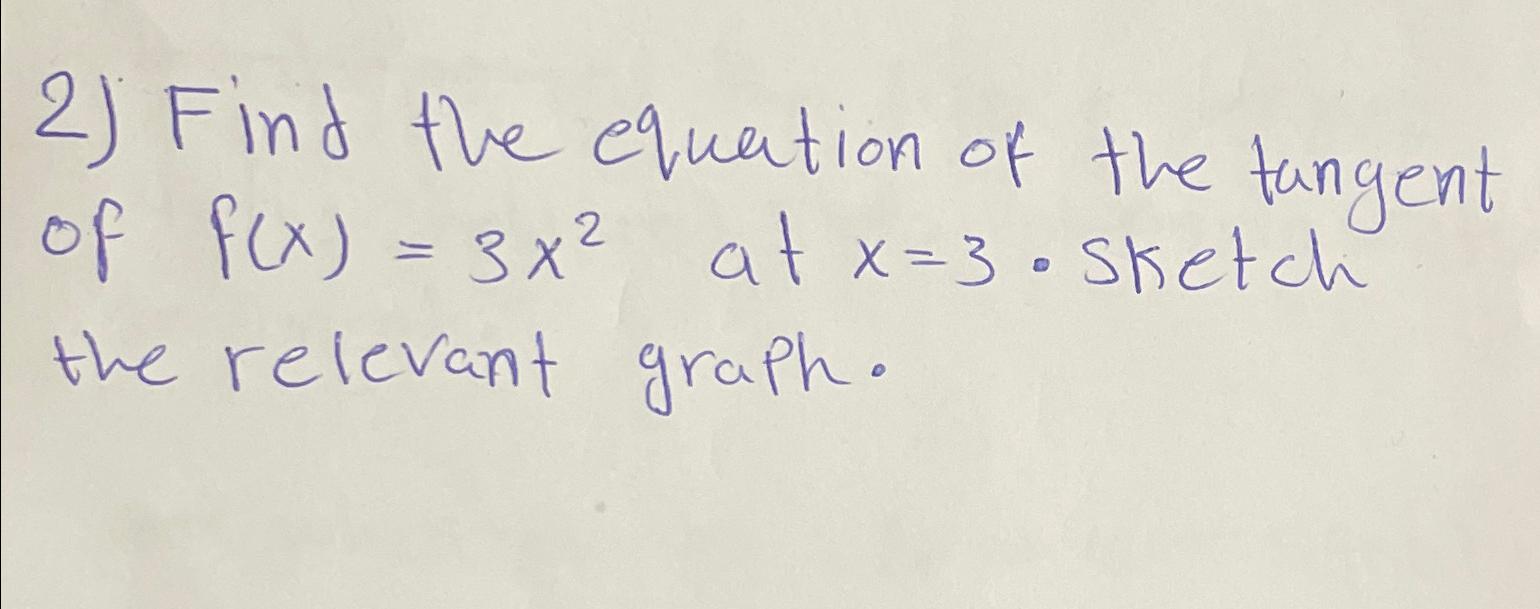 2) Find the equation of the tangent
of f(x) = 3x² at x=3. Sketch
the relevant graph.